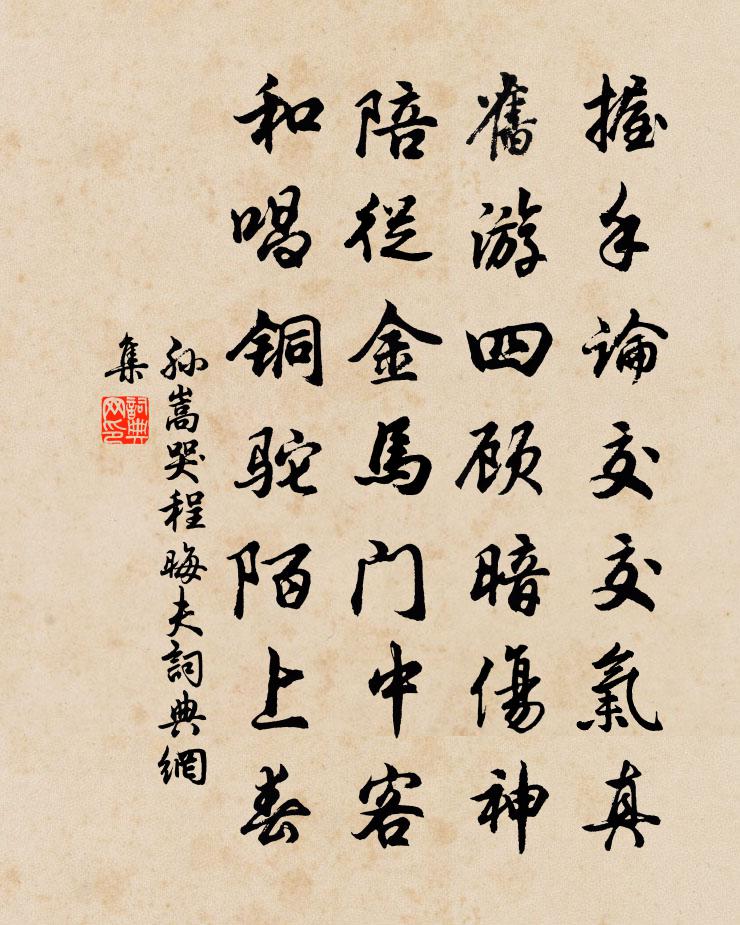 握手論交交氣真
舊游四顧暗傷神
陪從金馬門中客
和唱銅駝陌上春
孫嵩哭程晦夫詞典網
集
詞典
网印